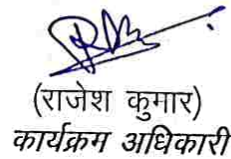 (राजेश कुमार)
कार्यक्रम अधिकारी